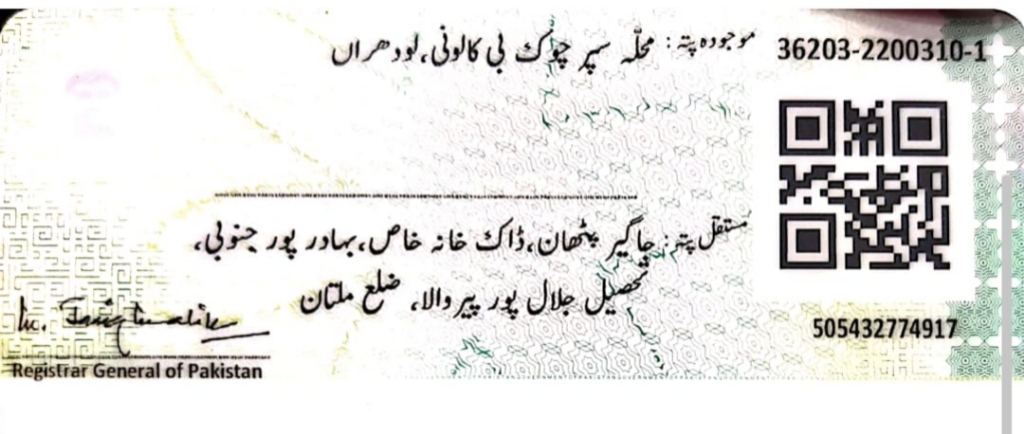 36203-2200310-1
موجودہ پتہ: محلّہ سپر چوک بی کالونی، لودھراں
مستقل پتہ: جاگیر پٹھان، ڈاک خانہ خاص، بہادر پور جنوبی،
تحصیل جلال پور پیر والا، ضلع ملتان
505432774917
Registrar General of Pakistan